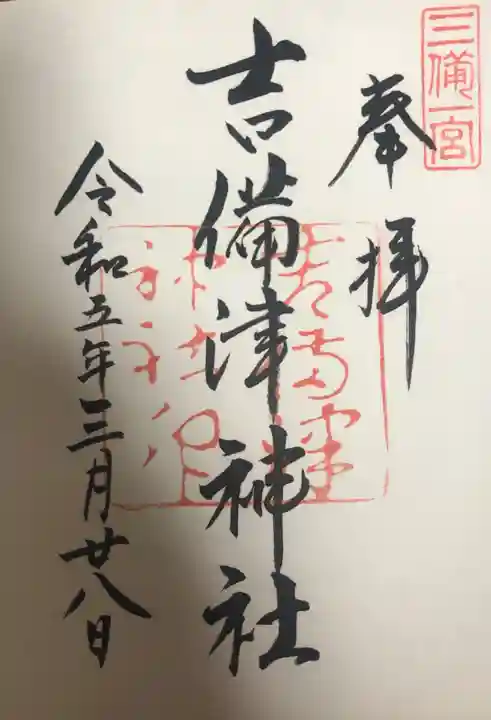 三備一宮
奉拝
吉備津神社
令和五年三月廿八日